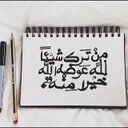 مَنْ تَركَ شَيْئاً
لله عَوضَهُ الله
خَيْراً مِنهُ